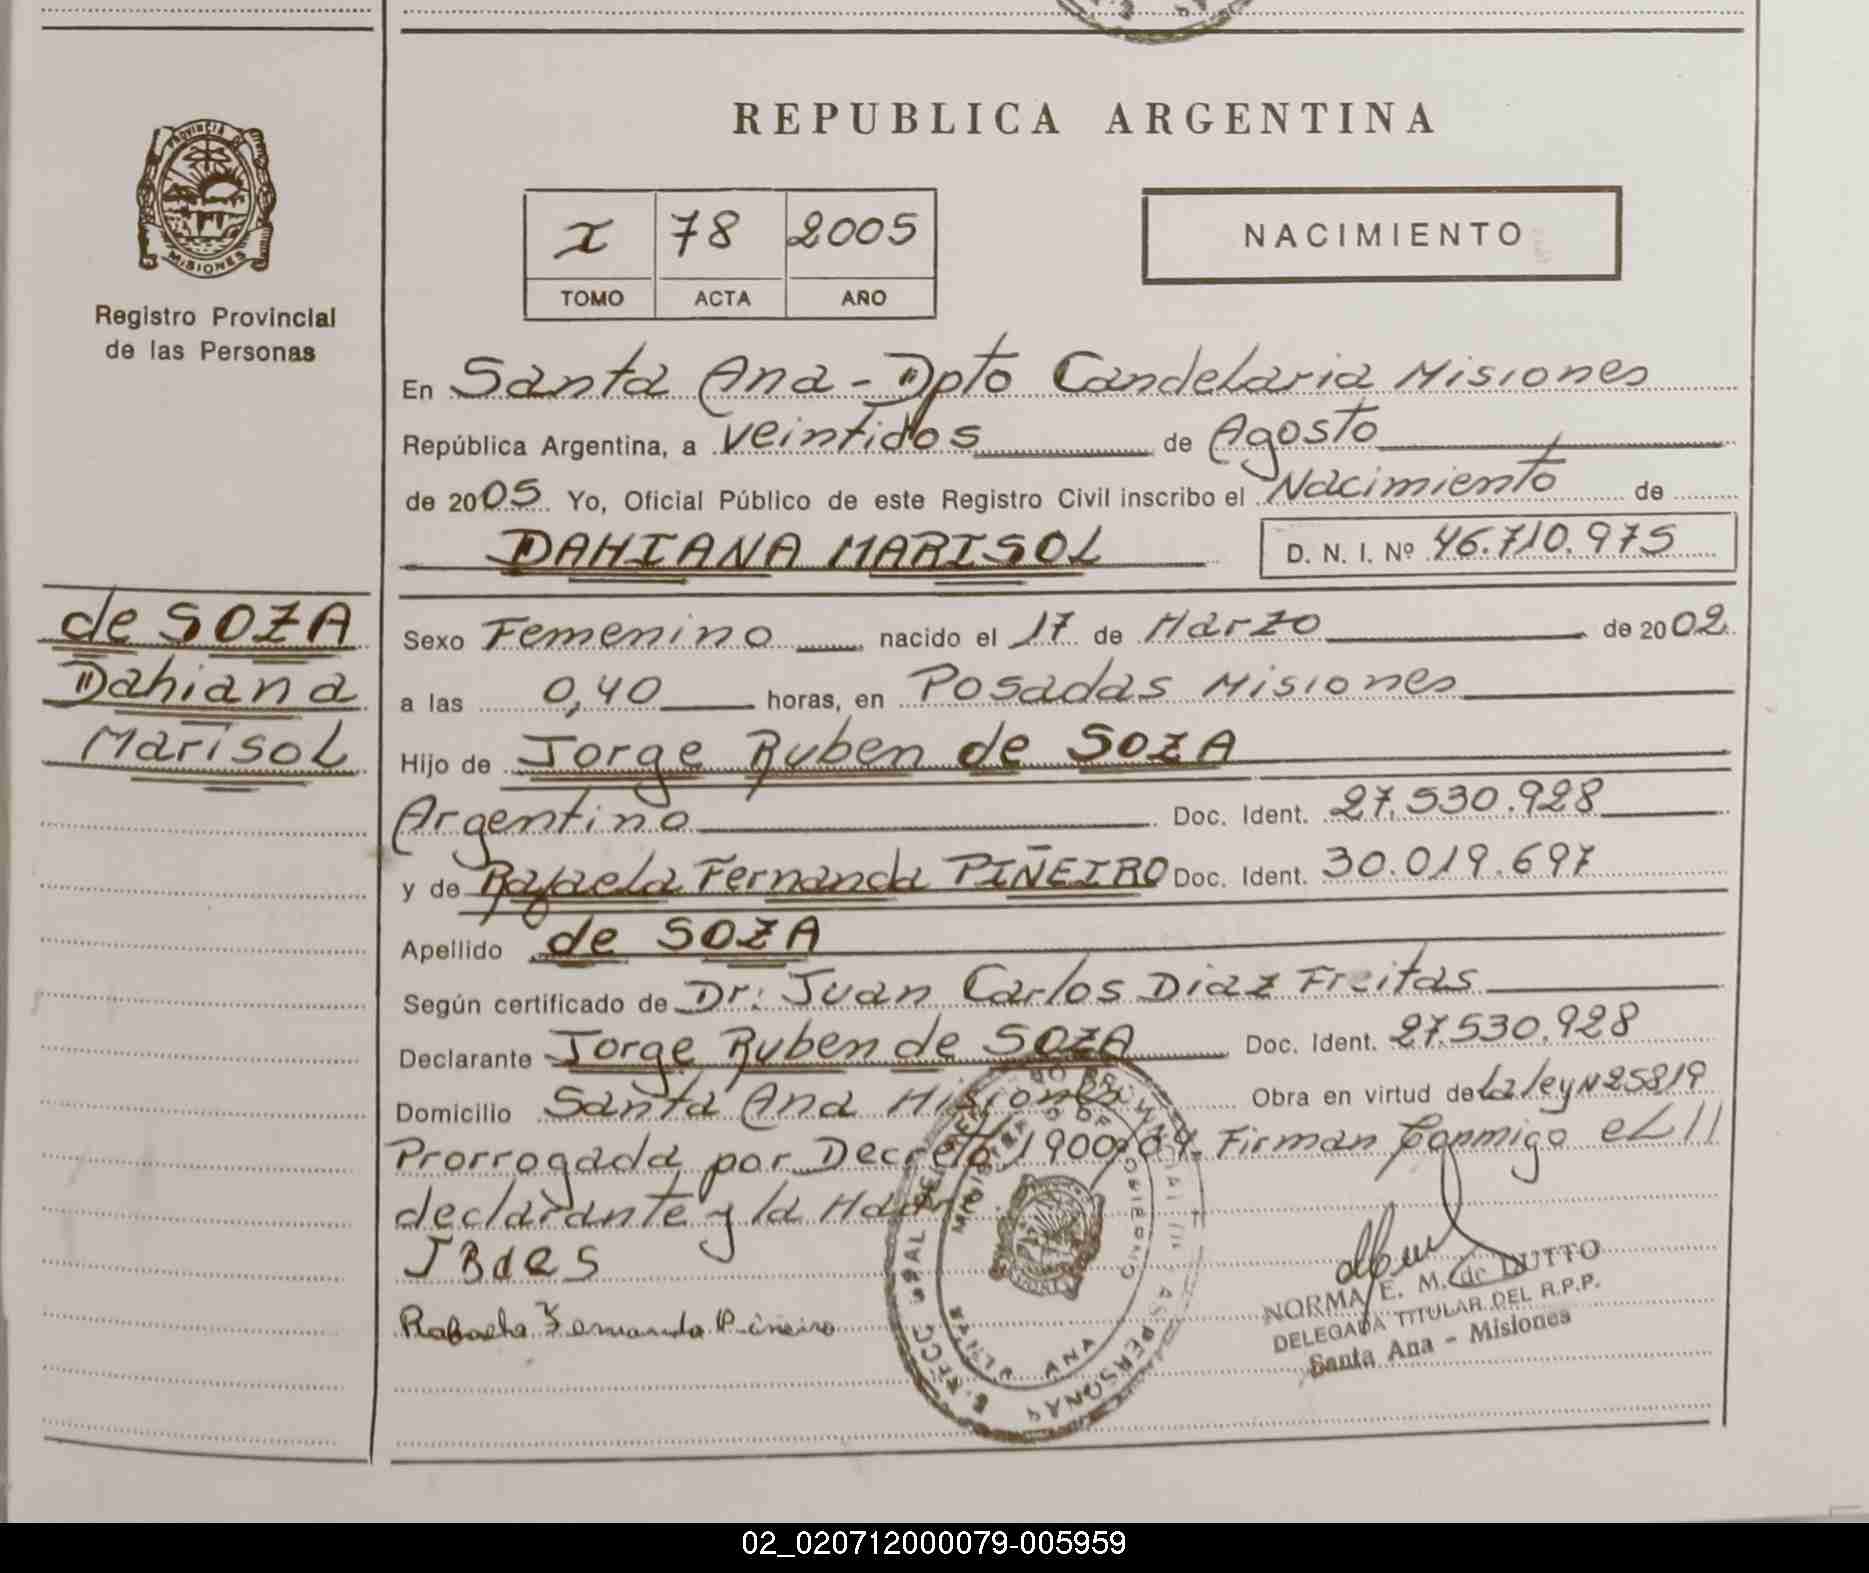 REPUBLICA ARGENTINA
PROVINCIA DE MISIONES
Registro Provincial
de las Personas
I 78 2005
TOMO ACTA AÑO
NACIMIENTO
En Santa Ana - Dpto Candelaria Misiones
República Argentina, a veintidos de Agosto
de 2005 Yo, Oficial Público de este Registro Civil inscribo el Nacimiento de
DAHIANA MARISOL D. N. I. Nº 46.710.975
de SOZA
Dahiana
Marisol
Sexo Femenino nacido el 17 de Marzo de 2002
a las 0,40 horas, en Posadas Misiones
Hijo de Jorge Ruben de SOZA
Argentino Doc. Ident. 27.530.928
y de Rafaela Fernanda PIÑEIRO Doc. Ident. 30.019.697
Apellido de SOZA
Según certificado de Dr: Juan Carlos Diaz Freitas
Declarante Jorge Ruben de SOZA Doc. Ident. 27.530.928
Domicilio Santa Ana Misiones Obra en virtud de La ley Nº 25819
Prorrogada por Decreto 1900/04. Firman Conmigo el //
declarante y la Madre.
JRdeS
Rafaela Fernanda Piñeiro
NORMA E. M. de DUTTO
DELEGADA TITULAR DEL R.P.P.
Santa Ana - Misiones
02_020712000079-005959